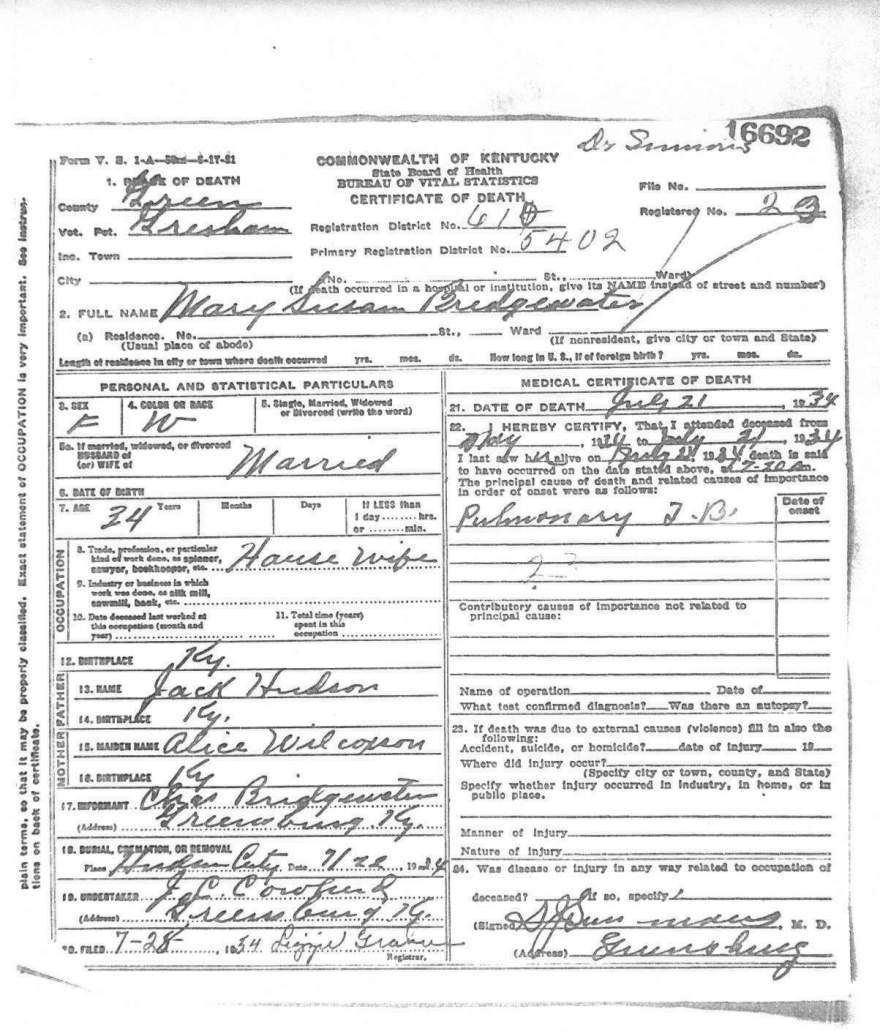 16692
Dr Simmons
Form V. S. 1-A—50m—8-17-31
COMMONWEALTH OF KENTUCKY
State Board of Health
BUREAU OF VITAL STATISTICS
CERTIFICATE OF DEATH
1. PLACE OF DEATH
County Green
Vot. Pct. Gresham
Inc. Town
City
Registration District No. 610
Primary Registration District No. 5402
File No.
Registered No. 23
(No. St., Ward)
(If death occurred in a hospital or institution, give its NAME instead of street and number)
2. FULL NAME Mary Susan Bridgewater
(a) Residence. No. St., Ward
(Usual place of abode) (If nonresident, give city or town and State)
Length of residence in city or town where death occurred yrs. mos. ds. How long in U. S., if of foreign birth? yrs. mos. ds.
PERSONAL AND STATISTICAL PARTICULARS
3. SEX F
4. COLOR OR RACE W
5. Single, Married, Widowed
or Divorced (write the word)
5a. If married, widowed, or divorced
HUSBAND of
(or) WIFE of Married
6. DATE OF BIRTH
7. AGE 34 Years Months Days If LESS than
1 day ........ hrs.
or ........ min.
OCCUPATION
8. Trade, profession, or particular
kind of work done, as spinner,
sawyer, bookkeeper, etc. House Wife
9. Industry or business in which
work was done, as silk mill,
sawmill, bank, etc.
10. Date deceased last worked at
this occupation (month and
year)
11. Total time (years)
spent in this
occupation
12. BIRTHPLACE Ky.
FATHER
13. NAME Jack Hudson
14. BIRTHPLACE Ky.
MOTHER
15. MAIDEN NAME Alice Wilcoxson
16. BIRTHPLACE Ky
17. INFORMANT Chas Bridgewater
(Address) Greensburg, Ky.
18. BURIAL, CREMATION, OR REMOVAL
Place City Date 7/22, 1934
19. UNDERTAKER J. C.
(Address) Greensburg Ky.
20. FILED 7-28, 1934 Lizzie
Registrar.
MEDICAL CERTIFICATE OF DEATH
21. DATE OF DEATH July 21, 1934
22. I HEREBY CERTIFY, That I attended deceased from
May, 1934 to July 21, 1934
I last saw her alive on 1934 death is said
to have occurred on the date stated above, at 7-20 Am.
The principal cause of death and related causes of importance
in order of onset were as follows:
Date of
onset
Pulmonary T.B.
23
Contributory causes of importance not related to
principal cause:
Name of operation Date of
What test confirmed diagnosis? Was there an autopsy?
23. If death was due to external causes (violence) fill in also the
following:
Accident, suicide, or homicide? date of injury 19
Where did injury occur?
(Specify city or town, county, and State)
Specify whether injury occurred in industry, in home, or in
public place.
Manner of injury
Nature of injury
24. Was disease or injury in any way related to occupation of
deceased? If so, specify
(Signed) S J Simmons, M. D.
(Address) Greensburg
plain terms, so that it may be properly classified. Exact statement of OCCUPATION is very important. See instruc-
tions on back of certificate.